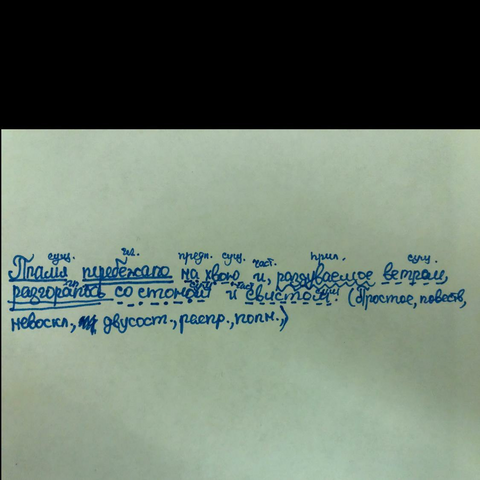 сущ. гл. предл. сущ. част. прил. сущ.
Пламя перебежало на хвою и, раздуваемое ветром,
гл. сущ. част. сущ.
разгоралось со стоном и свистом. (Простое, повеств,
невоскл., двусост., распр., полн.,)